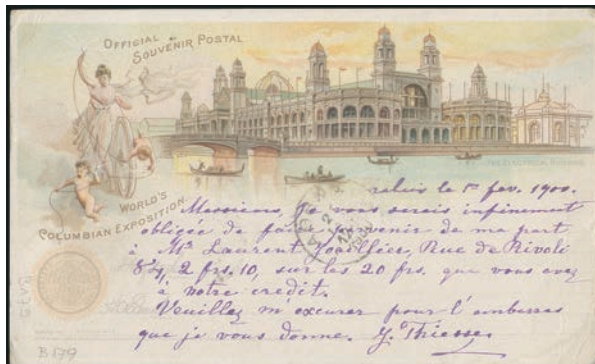 OFFICIAL
SOUVENIR POSTAL
WORLD'S
COLUMBIAN EXPOSITION
THE ELECTRICAL BUILDING
le 1er fev. 1900.
Messieurs, Je vous serais infiniment
obligée de faire parvenir de ma part
à Mr. Laurent Rue de Rivoli
84, 2 frs. 10, sur les 20 frs. que vous avez
à notre crédit.
Veuillez m'excuser pour l'embarras
que je vous donne.
B 179